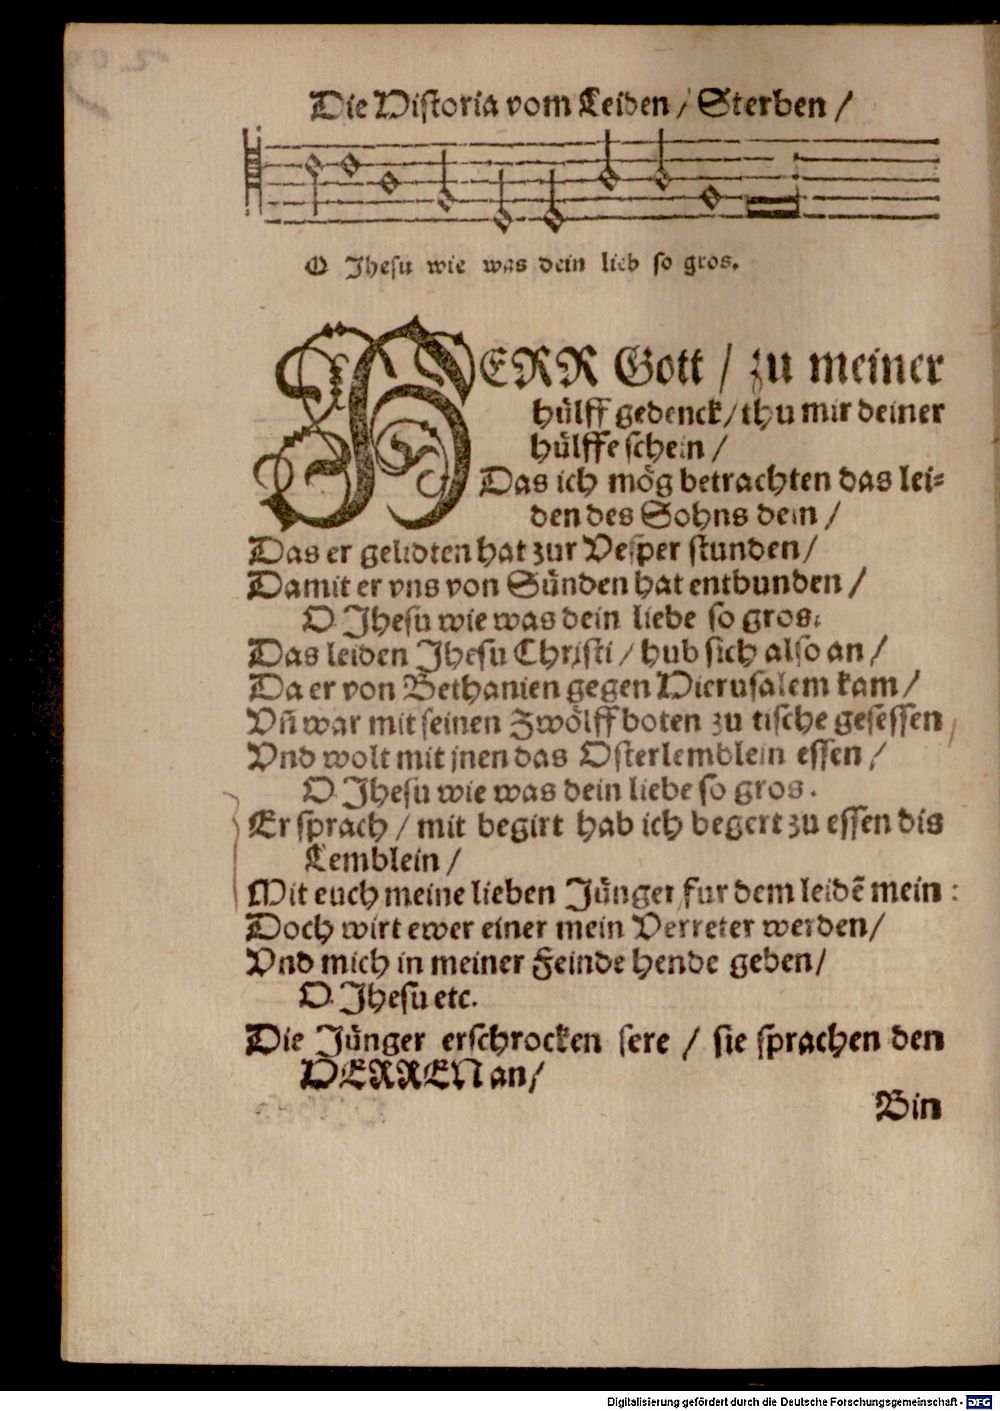 Die Historia vom Leiden / Sterben /
O Jhesu wie was dein lieb so gros.
HERR Gott / zu meiner
hülff gedenck / thu mir deiner
hülffe schein /
Das ich mög betrachten das lei⸗
den des Sohns dein /
Das er gelidten hat zur Vesper stunden /
Damit er vns von Sünden hat entbunden /
O Jhesu wie was dein liebe so gros.
Das leiden Jhesu Christi / hub sich also an /
Da er von Bethanien gegen Hierusalem kam /
Vñ war mit seinen Zwölffboten zu tische gesessen /
Vnd wolt mit jnen das Osterlemblein essen /
O Jhesu wie was dein liebe so gros.
Er sprach / mit begirt hab ich begert zu essen dis
Lemblein /
Mit euch meine lieben Jünger / fur dem leidẽ mein :
Doch wirt ewer einer mein Verreter werden /
Vnd mich in meiner Feinde hende geben /
O Jhesu etc.
Die Jünger erschrocken sere / sie sprachen den
HERREN an /
Bin
Digitalisierung gefördert durch die Deutsche Forschungsgemeinschaft - DFG